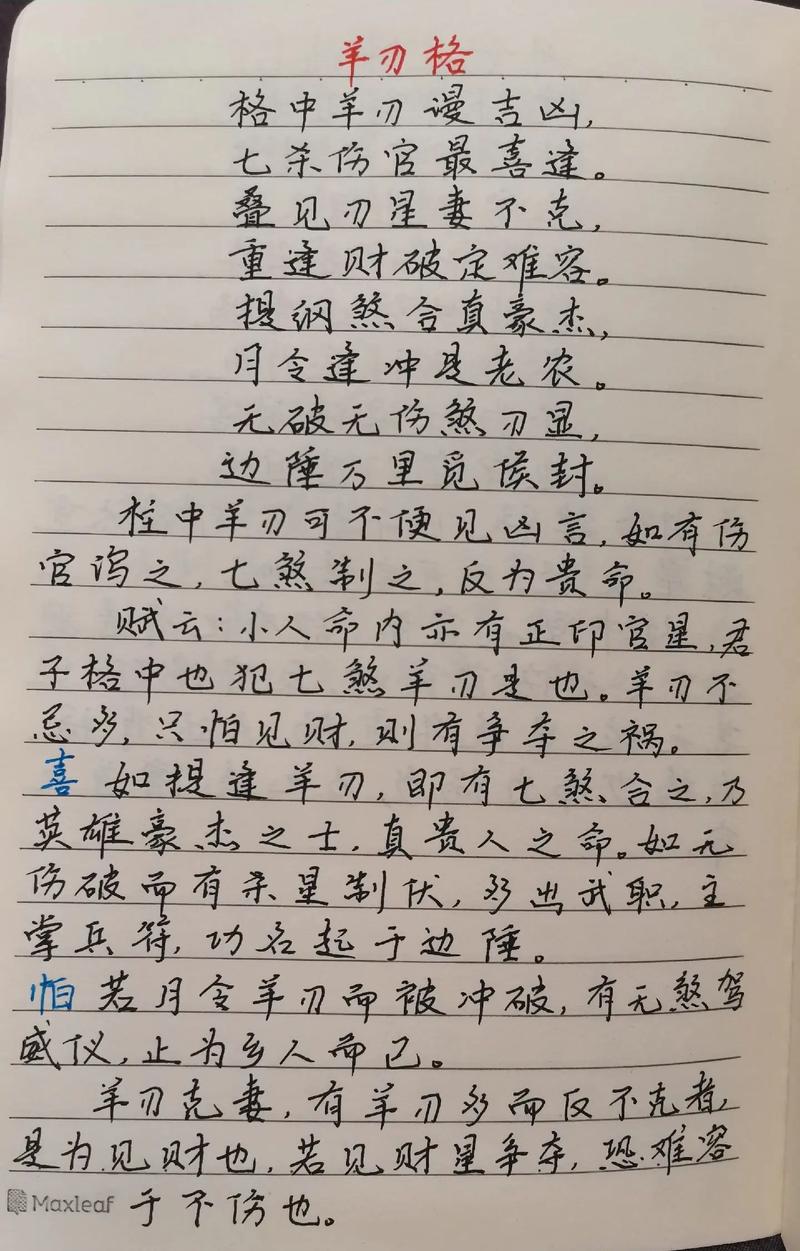 羊刃格
格中羊刃谩吉凶,
七杀伤官最喜逢。
叠见刃星妻不克,
重逢财破定难容。
提纲煞合真豪杰,
月令逢冲是老农。
无破无伤煞刃显,
边陲万里觅侯封。
柱中羊刃可不便见凶言,如有伤
官泻之,七煞制之,反为贵命。
赋云:小人命内亦有正印官星,君
子格中也犯七煞羊刃是也。羊刃不
忌多,只怕见财,则有争夺之祸。
喜 如提逢羊刃,即有七煞合之,乃
英雄豪杰之士,真贵人之命。如无
伤破而有杀星制伏,多出武职,主
掌兵符,功名起于边陲。
怕 若月令羊刃而被冲破,有无煞驾
威仪,止为乡人而已。
羊刃克妻,有羊刃多而反不克者,
是为见财也,若见财星争夺,恐难容
于不伤也。
Maxleaf